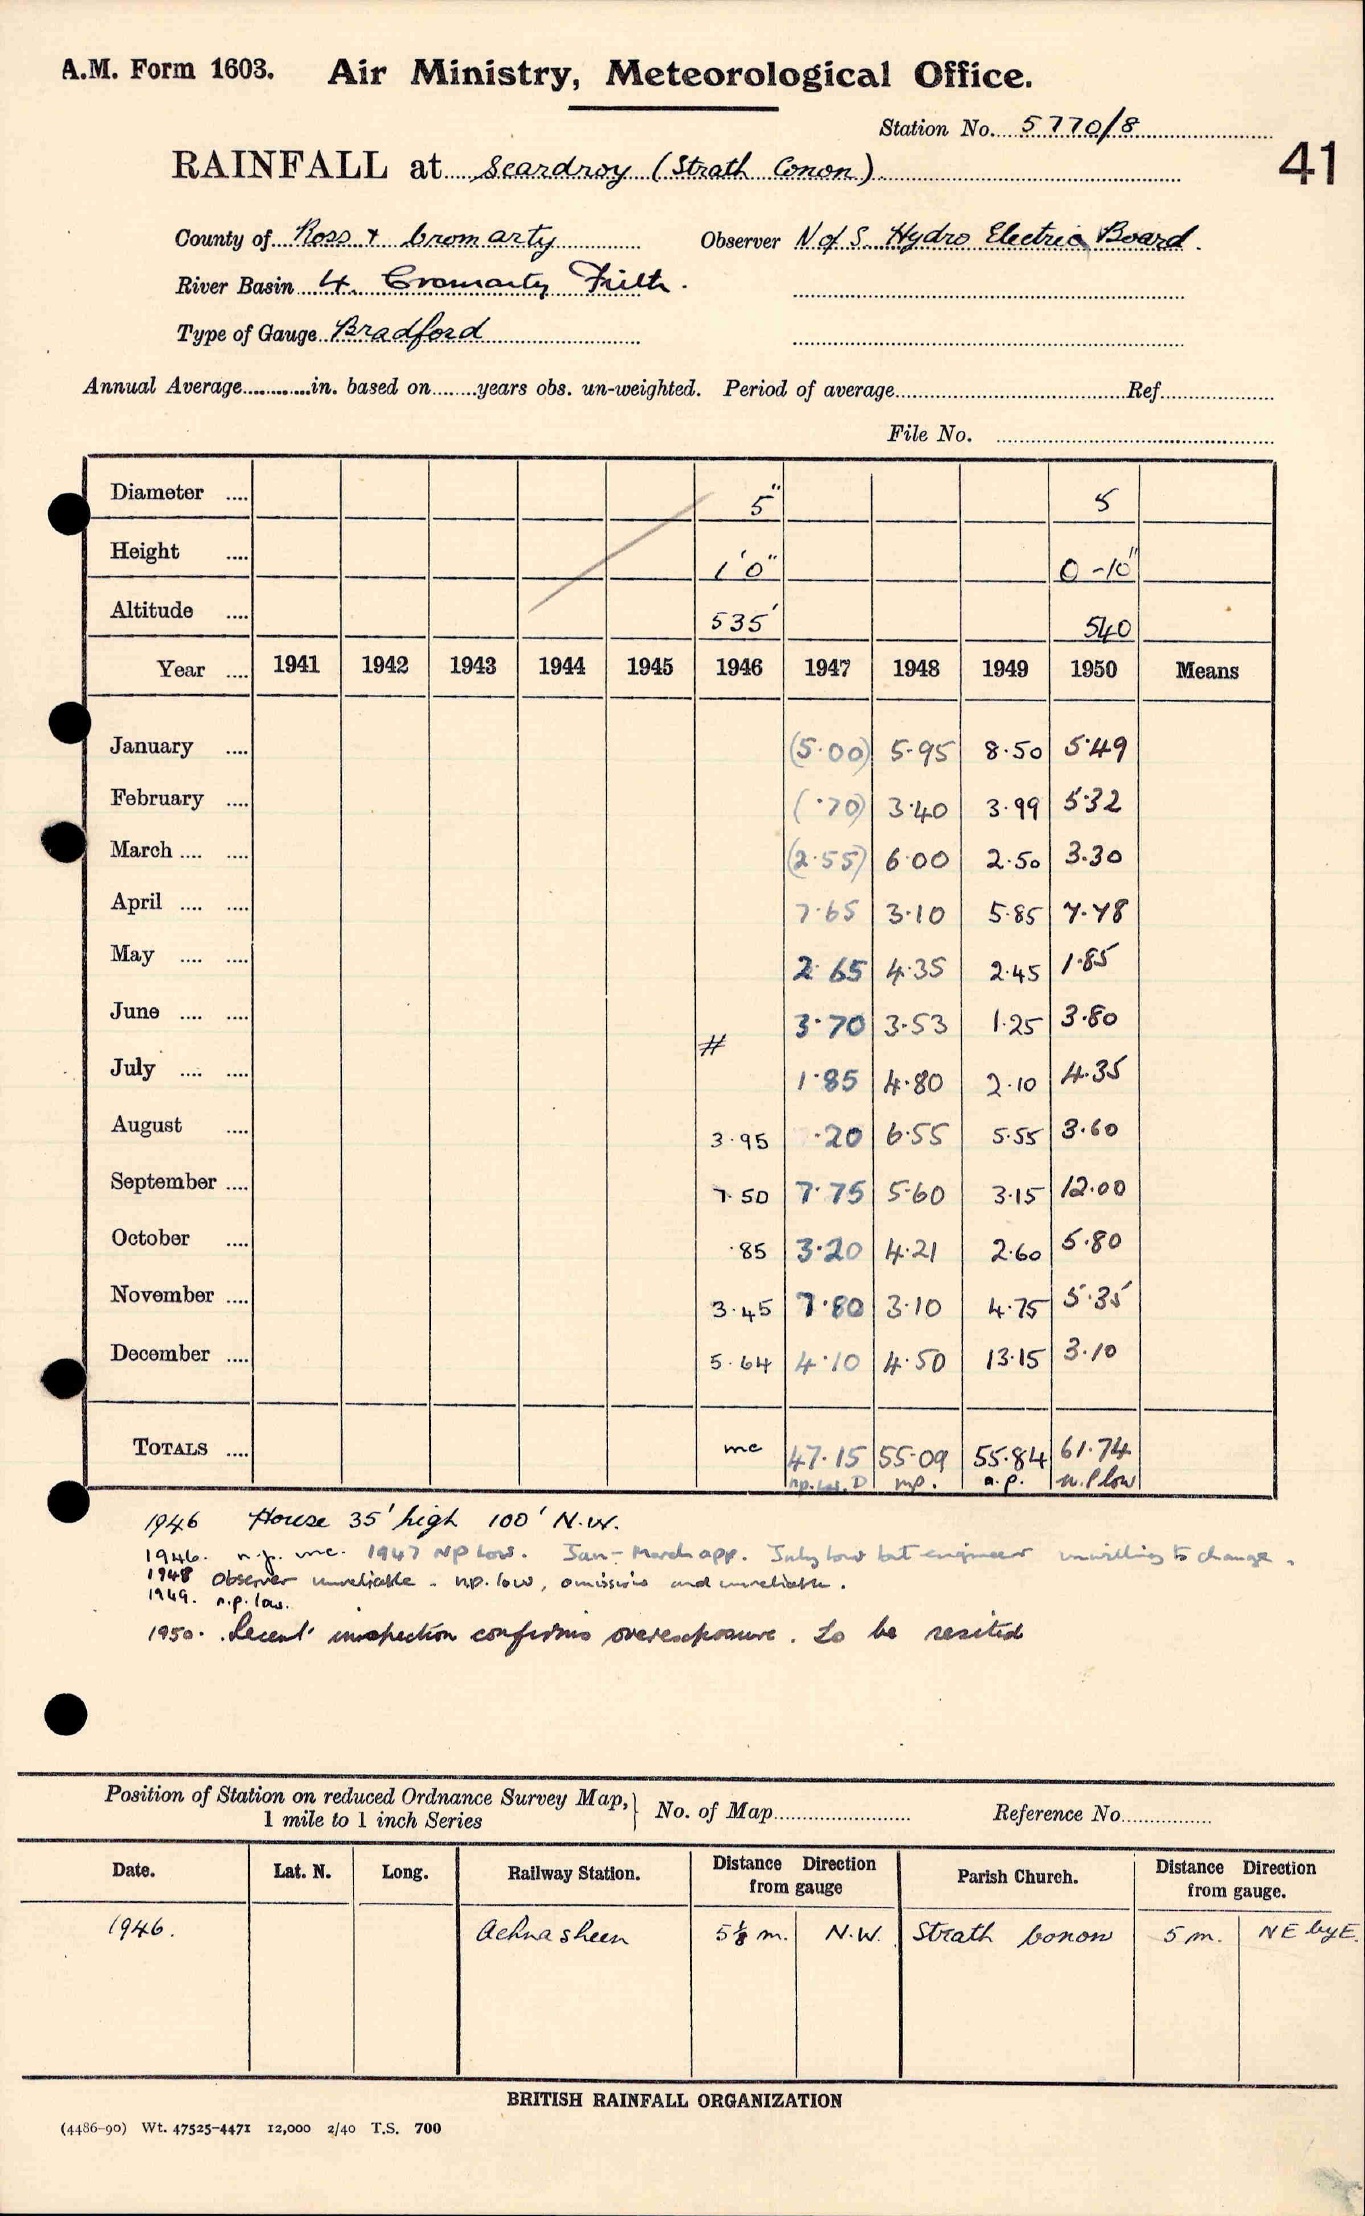 A.M. Form 1603. Air Ministry, Meteorological Office.
Station No. 5770/8
41
RAINFALL at Scardroy (Strath Conon)
County of Ross & Cromarty Observer N of S. Hydro Electric Board.
River Basin 4. Cromarty Firth.
Type of Gauge Bradford
Annual Average............in. based on........years obs. un-weighted. Period of average........Ref........
File No. ........
Diameter .... 5" 5
Height .... 1'0" 0-10"
Altitude .... 535' 540
Year .... 1941 1942 1943 1944 1945 1946 1947 1948 1949 1950 Means
January .... (5.00) 5.95 8.50 5.49
February .... (.70) 3.40 3.99 5.32
March .... .... (2.55) 6.00 2.50 3.30
April .... .... 7.65 3.10 5.85 7.78
May .... .... 2.65 4.35 2.45 1.85
June .... .... 3.70 3.53 1.25 3.80
#
July .... .... 1.85 4.80 2.10 4.35
August .... 3.95 .20 6.55 5.55 3.60
September .... 7.50 7.75 5.60 3.15 12.00
October .... .85 3.20 4.21 2.60 5.80
November .... 3.45 7.80 3.10 4.75 5.35
December .... 5.64 4.10 4.50 13.15 3.10
TOTALS .... mc 47.15 55.09 55.84 61.74
np. low. D mp. n.p. n.p low
1946 House 35' high 100' N.W.
1946. n.p. mc. 1947 NP Low. Jan-March app. July low but engineer unwilling to change.
1948 Observer unreliable. n.p. low, omissions and unreliable.
1949. n.p. low.
1950. Recent inspection confirms overexposure. To be resited
Position of Station on reduced Ordnance Survey Map, 1 mile to 1 inch Series } No. of Map........ Reference No........
Date. Lat. N. Long. Railway Station. Distance Direction from gauge Parish Church. Distance Direction from gauge.
1946. Achnasheen 5⅛ m. N.W. Strath Conon 5 m. NE by E.
BRITISH RAINFALL ORGANIZATION
(4486-90) Wt. 47525-4471 12,000 2/40 T.S. 700